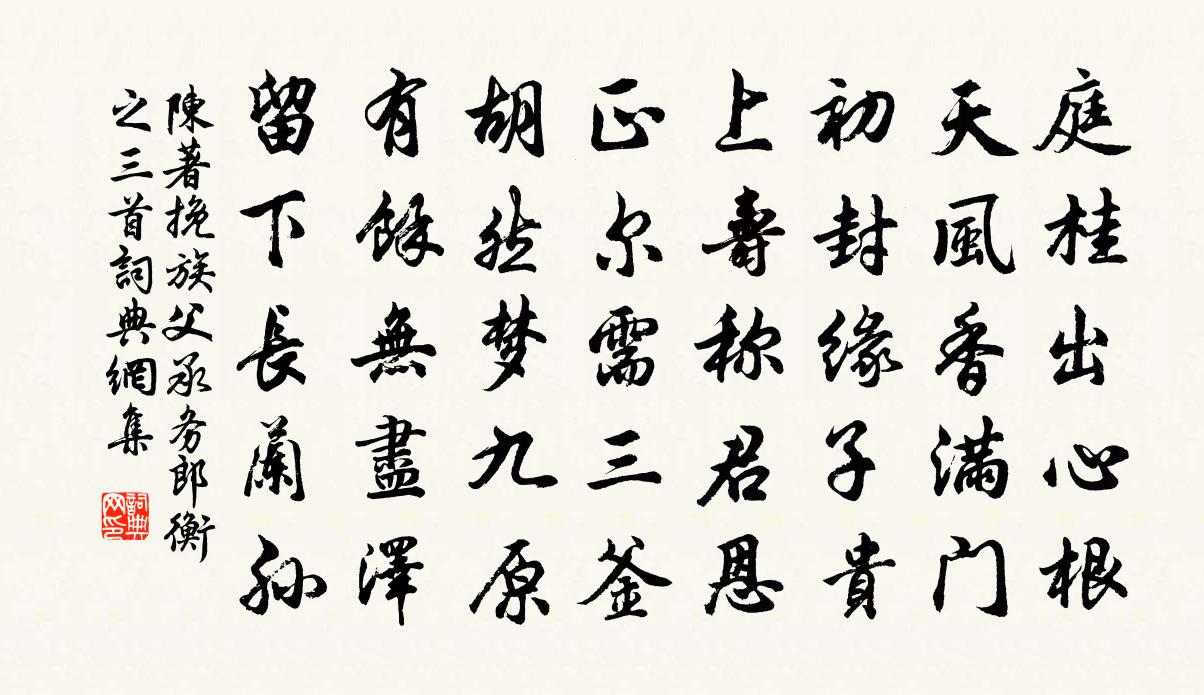 庭桂出心根
天風香滿门
初封緣子貴
上壽称君恩
正尔需三釜
胡然梦九原
有餘無盡澤
留下長蘭孙
陳著挽族父承务郎衡
之三首詞典網集
詞典网印